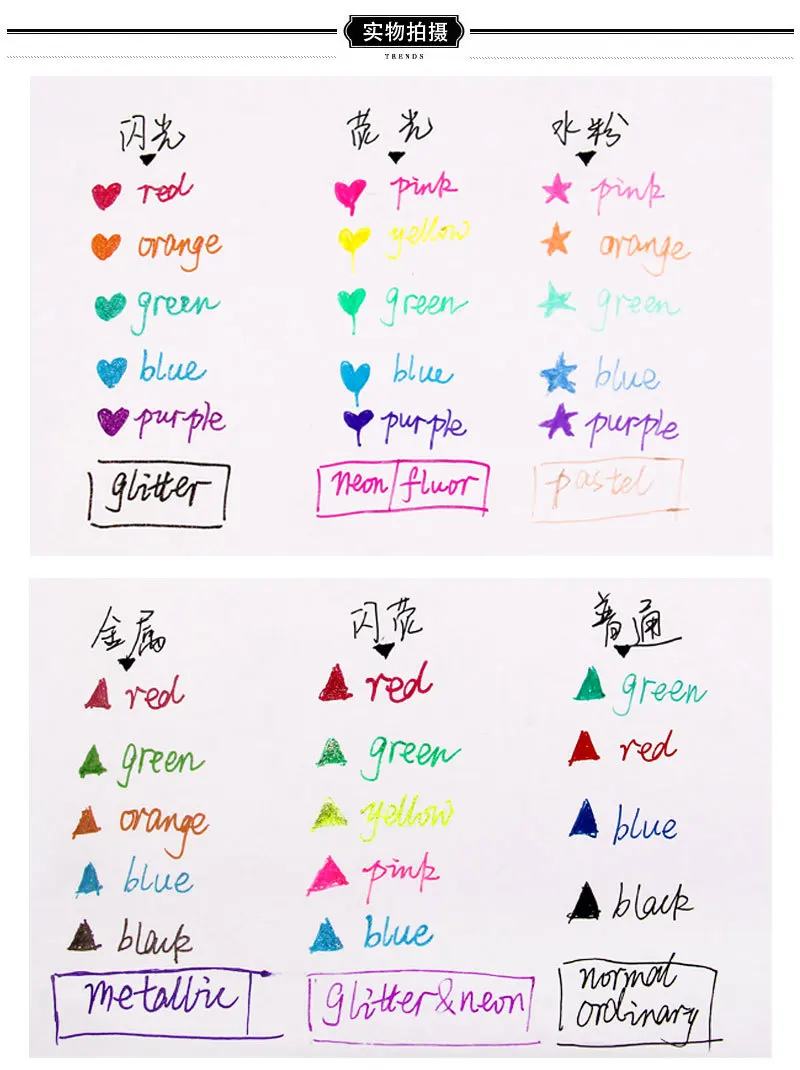 实物拍摄
TRENDS
闪光
red
orange
green
blue
purple
glitter
荧光
pink
yellow
green
blue
purple
neon/fluor
水粉
pink
orange
green
blue
purple
pastel
金属
red
green
orange
blue
black
metallic
闪荧
red
green
yellow
pink
blue
glitter&neon
普通
green
red
blue
black
normal
ordinary